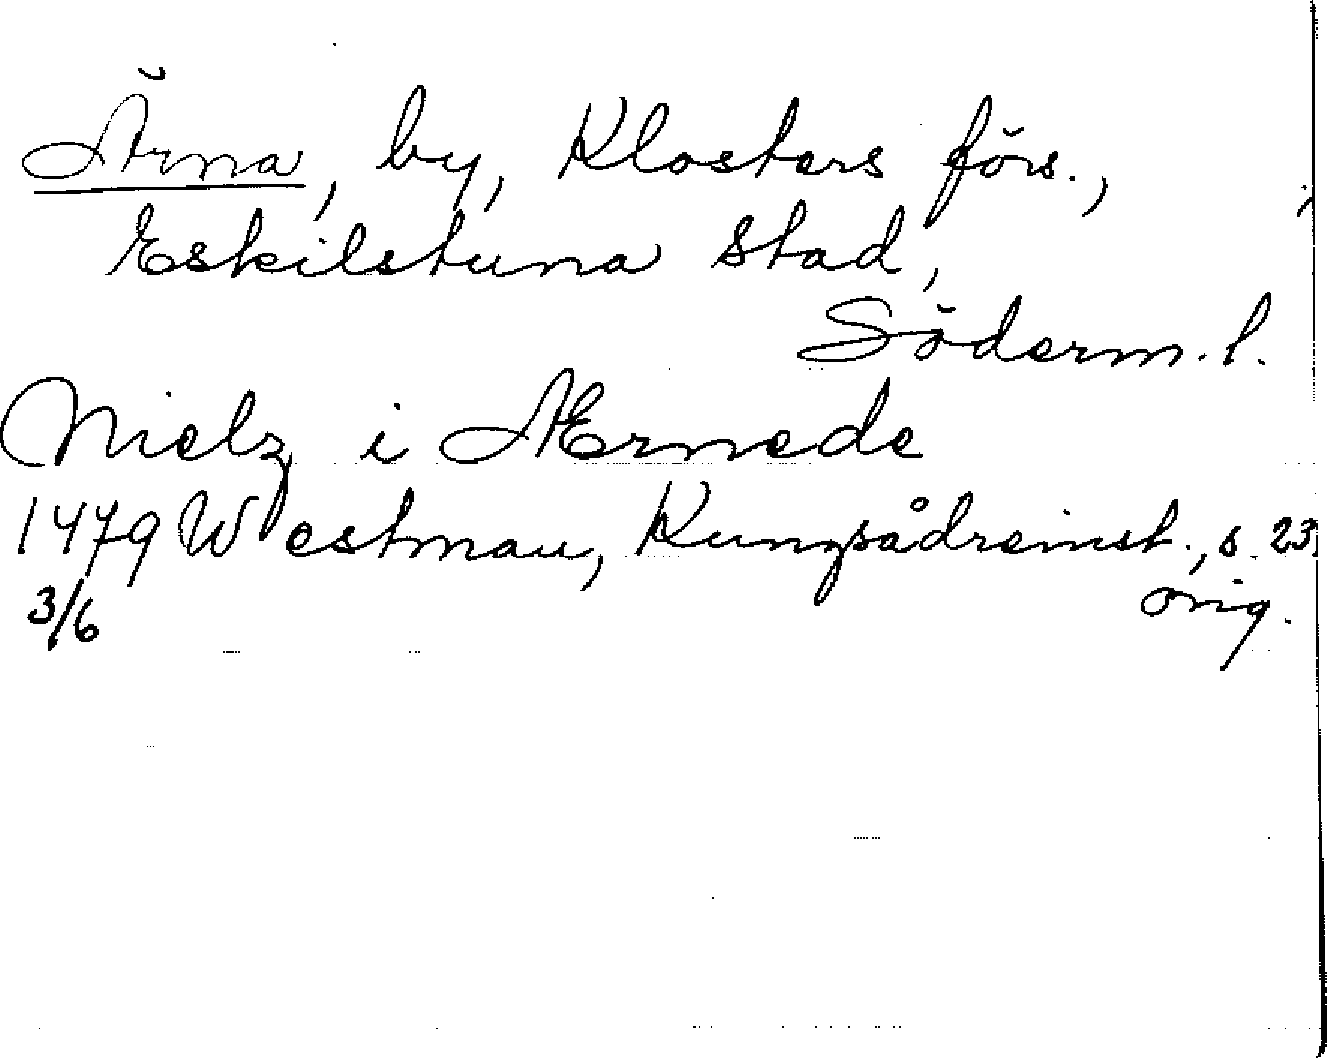 Ärna, by, Klosters förs.,
Eskilstuna stad,
Söderm. l.
Nielz i Ærnede
1479 Westman, Kungsådreinst., s. 23
3/6 orig.